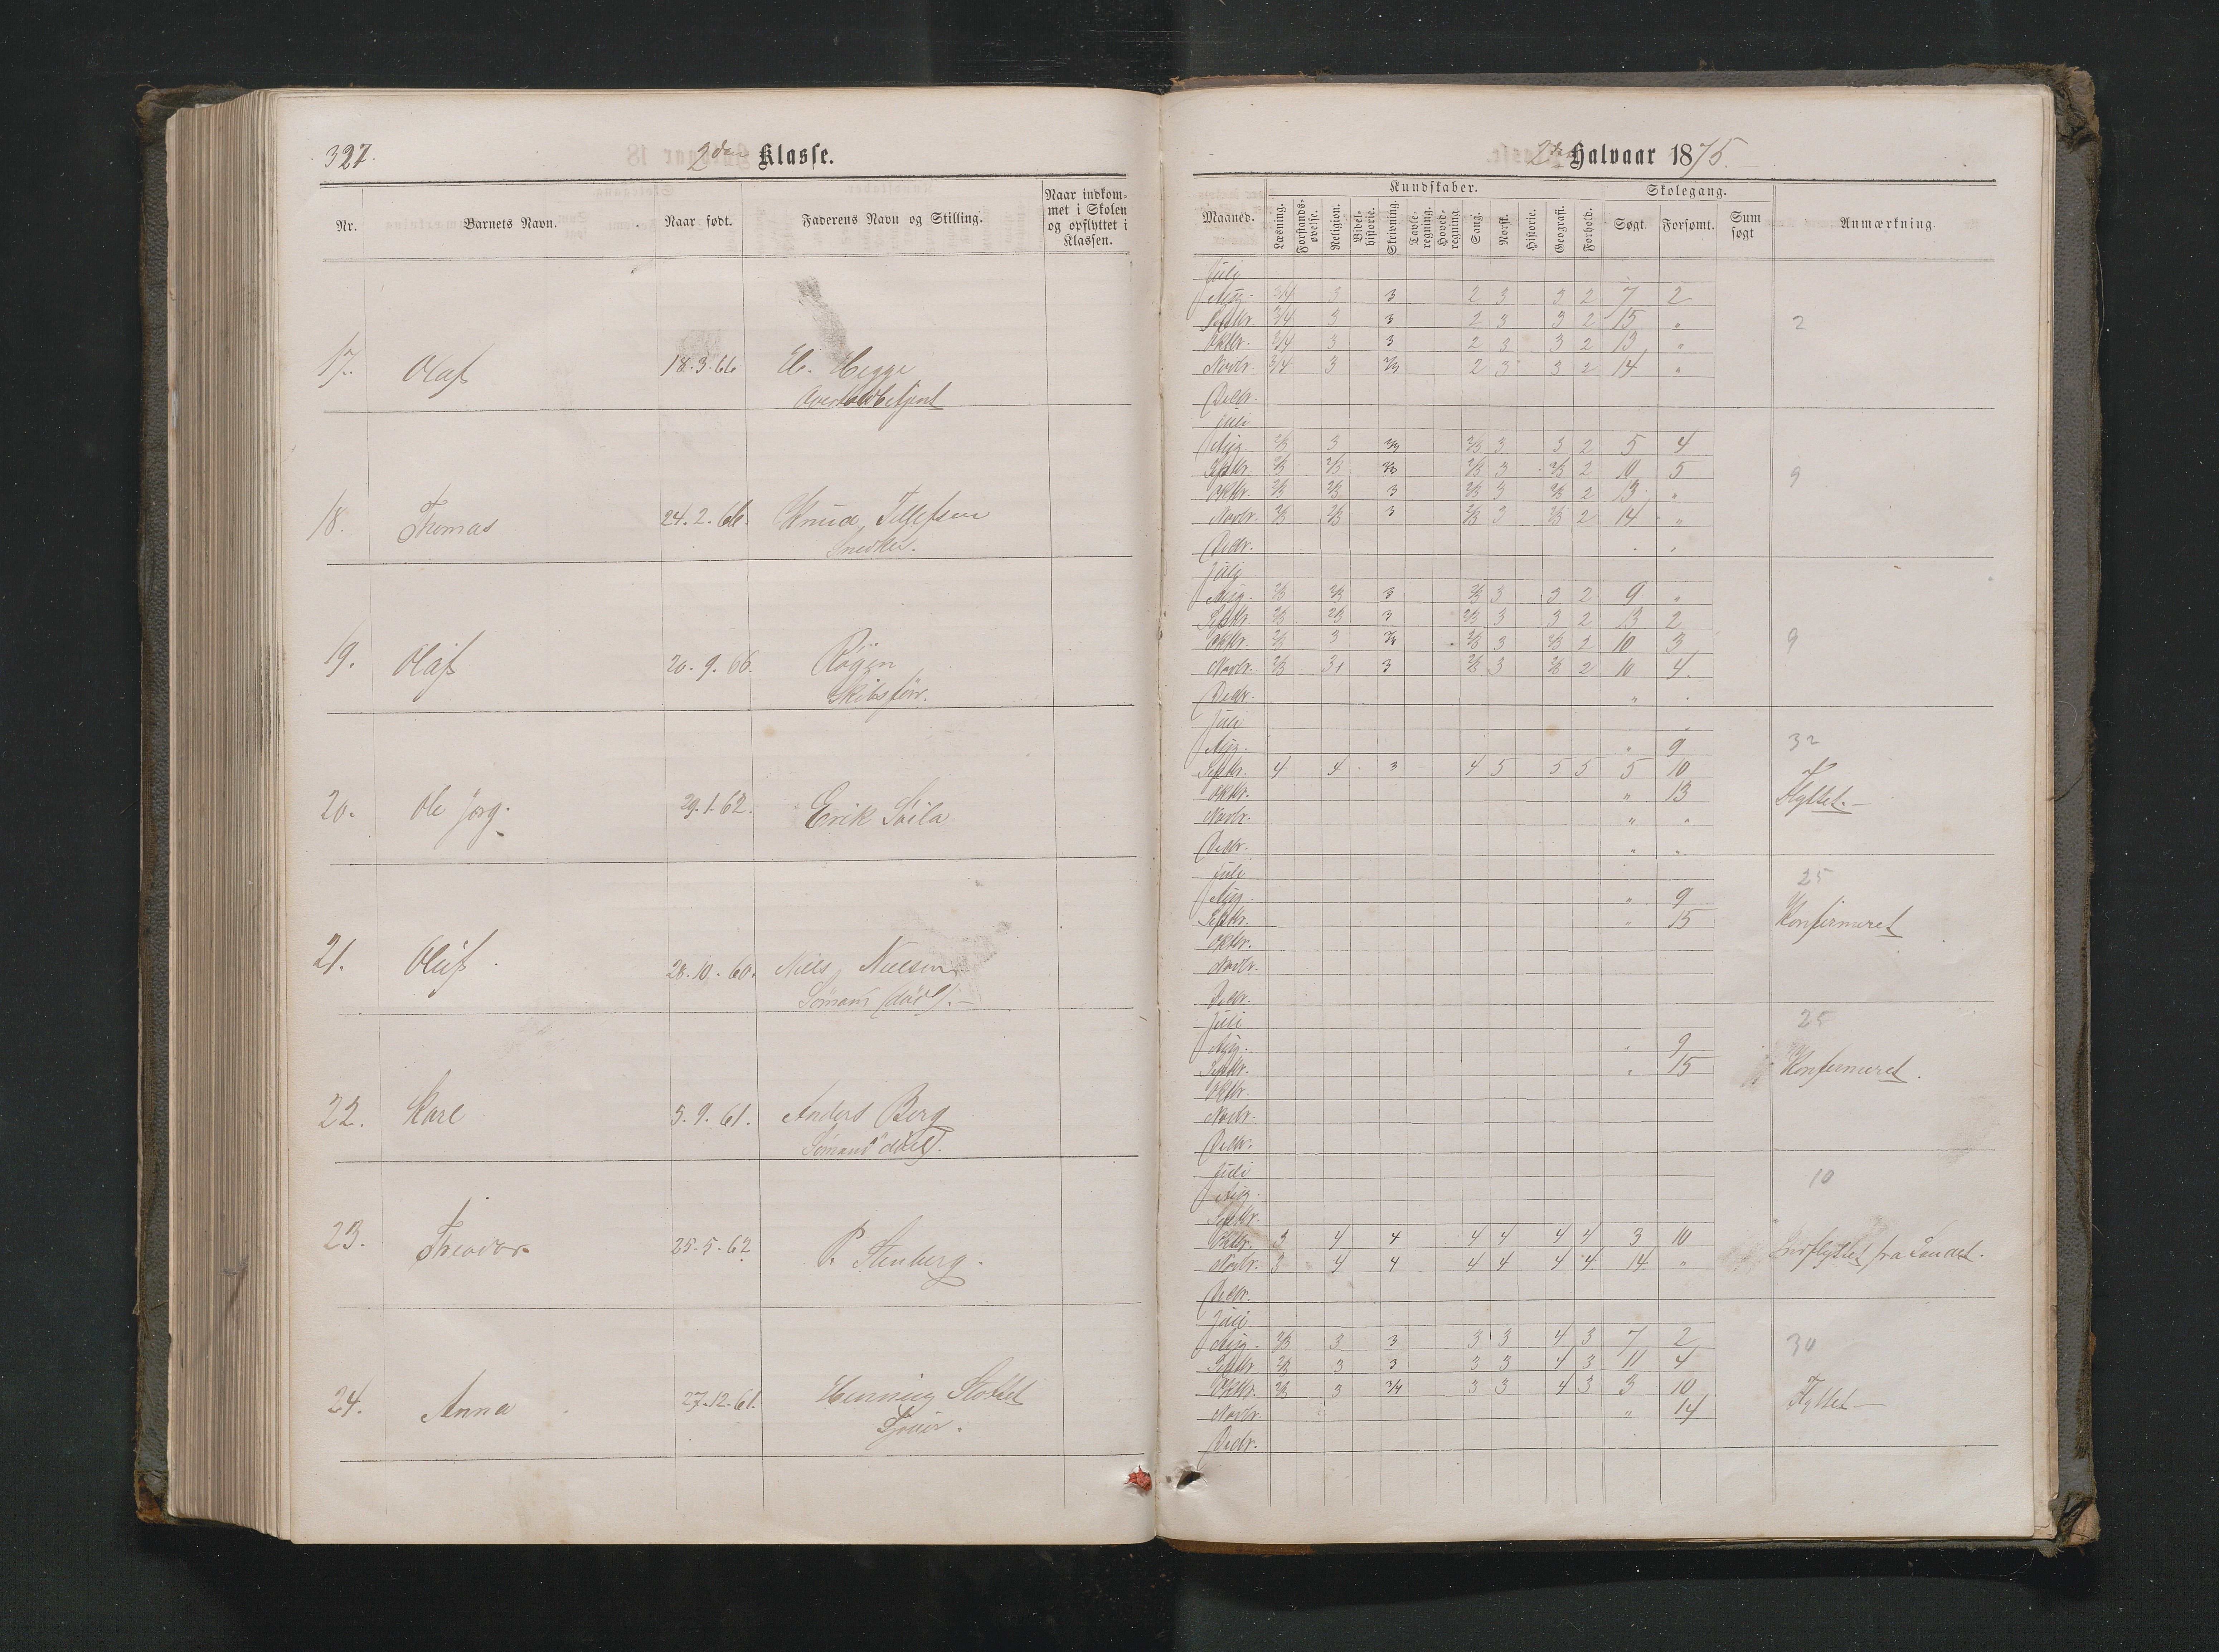 327.
2den Klasse.
Nr.
Barnets Navn.
Naar født.
Faderens Navn og Stilling.
Naar indkom-
met i Skolen
og opflyttet i
Klassen.
17. Olaf 18.3.66 Hegge
18. Thomas 24.2.66. Knud Tellefsen
Snedker.
19. Olaf 20.9.66.
Skibsfør.
20. Ole Jørg. 29.1.62. Erik
21. Oluf 28.10.60. Niels Nielsen
Sømand (død).
22. Karl 5.9.61. Anders Berg
Sømand død.
23. Theodor 25.5.62 P. Stenberg.
24. Anna 27.12.61. Henning
2det Halvaar 1875.
Kundskaber.
Skolegang.
Maaned.
Læsning.
Forstands-
øvelse.
Religion.
Bibel-
historie.
Skrivning.
Tavle-
regning.
Hoved-
regning.
Sang.
Norsk.
Historie.
Geografi.
Forhold.
Søgt.
Forsømt.
Sum
søgt
Anmærkning.
Juli
Aug. 3/4 3 3 2 3 3 2 7 2
Septbr. 3/4 3 3 2 3 3 2 15 " 2
Oktbr. 3/4 3 3 2 3 3 2 13 "
Novbr. 3/4 3 2/3 2 3 3 2 14 "
Decbr.
Juli
Aug. 2/3 3 2/3 2/3 3 3 2 5 4
Septbr. 2/3 2/3 2/3 2/3 3 2/3 2 10 5 9
Oktbr. 2/3 2/3 3 2/3 3 2/3 2 13 "
Novbr. 2/3 2/3 3 2/3 3 2/3 2 14 "
Decbr.
Juli
Aug. 2/3 2/3 3 2/3 3 3 2 9 "
Septbr. 2/3 2/3 3 2/3 3 3 2 13 2
Oktbr. 2/3 3 3/4 2/3 3 2/3 2 10 3 9
Novbr. 2/3 3 3 2/3 3 2/3 2 10 4
Decbr. "
Juli
Aug. " 9 32
Septbr. 4 4 3 4 5 5 5 5 10
Oktbr. " 13 Flyttet.
Novbr. " "
Decbr. " "
Juli 25
Aug. " 9
Septbr. " 15 Konfirmeret
Oktbr.
Novbr.
Decbr.
Juli 25
Aug. " 9
Septbr. " 15 Konfirmeret.
Oktbr.
Novbr.
Decbr.
Juli 10
Aug.
Septbr.
Oktbr. 3 4 4 4 4 4 4 3 10
Novbr. 3 4 4 4 4 4 4 14 " Indflyttet fra Landet.
Decbr.
Juli
Aug. 2/3 3 3 3 3 4 3 7 2 30
Septbr. 2/3 3 3 3 3 4 3 11 4
Oktbr. 2/3 3 3/4 3 3 4 3 3 10 Flyttet
Novbr. " 14
Decbr.